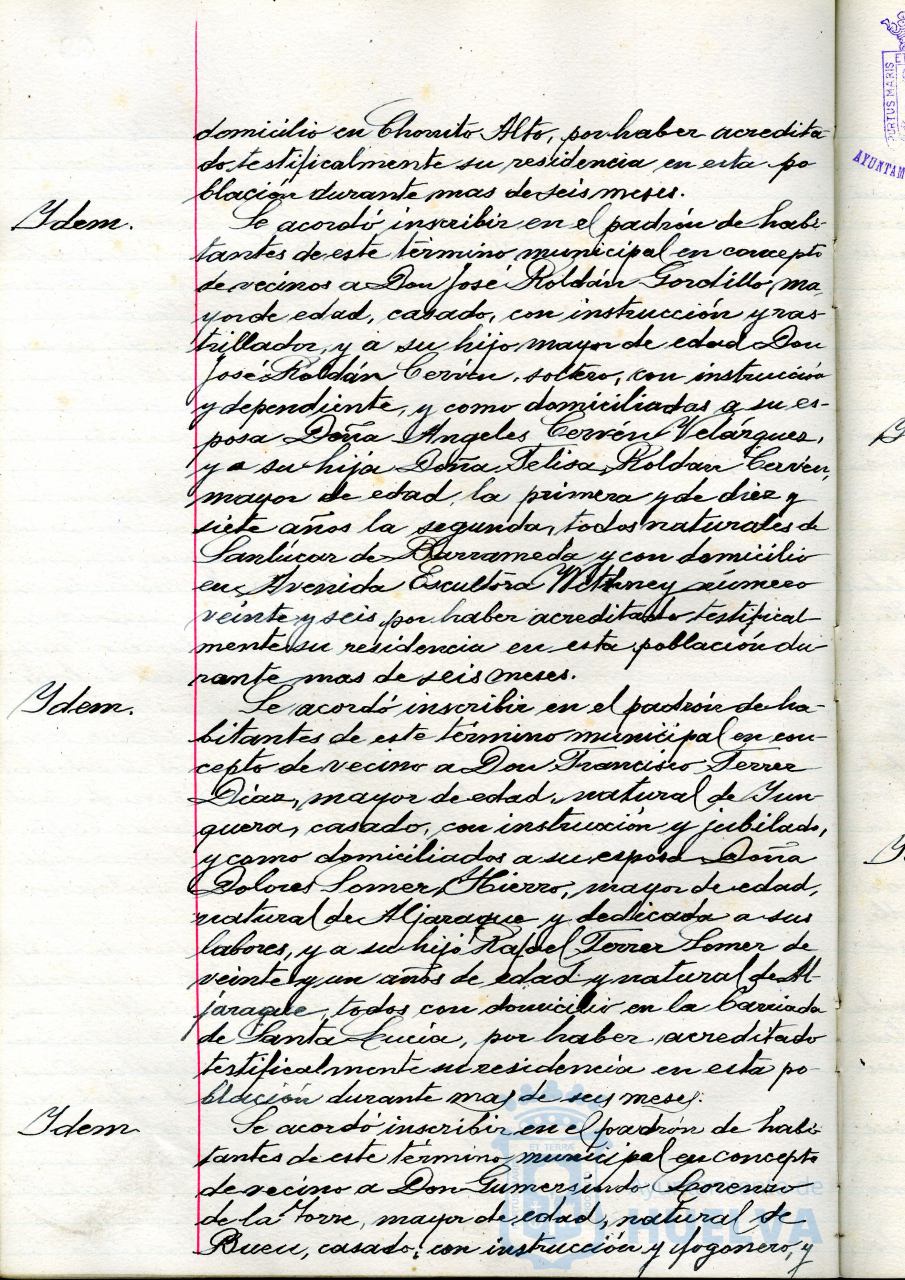 domicilio en Chorrito Alto, por haber acredita
do testificalmente su residencia en esta po
blación durante mas de seis meses.
Ydem.
Se acordó inscribir en el padrón de habi-
tantes de este término municipal en concepto
de vecinos a Don José Roldán Gordillo, ma
yor de edad, casado, con instrucción y ras-
trillador, y a su hijo mayor de edad Don
José Roldán Cervén, soltero, con instrucción
y dependiente, y como domiciliadas a su es-
posa Doña Angeles Cervén Velázquez,
y a su hija Doña Felisa Roldan Cerven,
mayor de edad la primera y de diez y
siete años la segunda, todos naturales de
Sanlúcar de Barrameda y con domicilio
en Avenida Escultora Withney número
veinte y seis por haber acreditado testifical-
mente su residencia en esta población du-
rante mas de seis meses.
Ydem.
Se acordó inscribir en el padrón de ha-
bitantes de este término municipal en con-
cepto de vecino a Don Francisco Ferrer
Díaz, mayor de edad, natural de Yun-
quera, casado, con instrucción y jubilado,
y como domiciliados a su esposa Doña
Dolores Somer Hierro, mayor de edad,
natural de Aljaraque y dedicada a sus
labores, y a su hijo Rafael Ferrer Somer de
veinte y un años de edad y natural de Al-
jaraque, todos con domicilio en la Barriada
de Santa Lucía, por haber acreditado
testificalmente su residencia en esta po-
blación durante mas de seis meses.
Ydem
Se acordó inscribir en el padrón de habi-
tantes de este término municipal en concepto
de vecino a Don Gumersindo Lorenzo
de la Torre, mayor de edad, natural de
Bueu, casado, con instrucción y fogonero, y
PORTUS MARIS
AYUNTAM
Ayuntamiento de
HUELVA